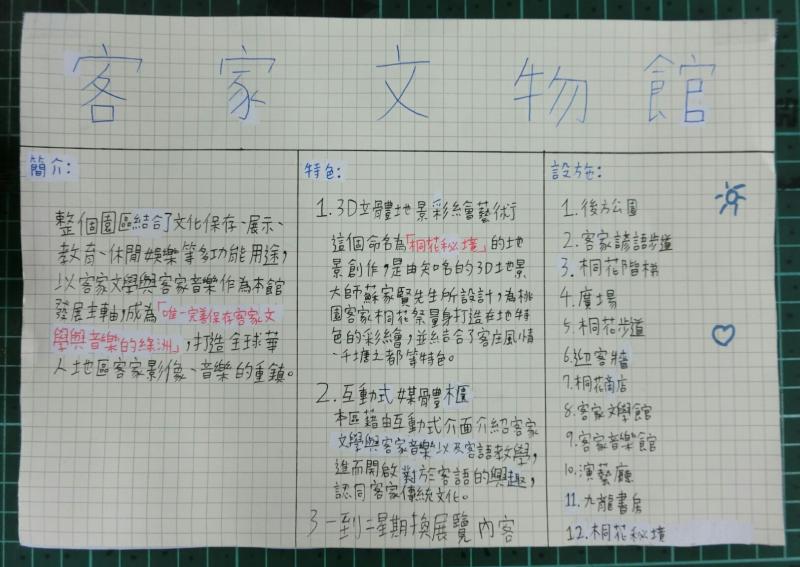 客家文物館
簡介:
整個園區結合了文化保存、展示、
教育、休閒娛樂等多功能用途,
以客家文學與客家音樂作為本館
發展主軸,成為「唯一完善保存客家文
學與音樂的綠洲」,打造全球華
人地區客家影像、音樂的重鎮。
特色:
1.3D立體地景彩繪藝術
這個命名為「桐花秘境」的地
景創作,是由知名的3D地景
大師蘇家賢先生所設計,為桃
園客家桐花祭量身打造在地特
色的彩繪,並結合了客庄風情
、千塘之都等特色。
2.互動式媒體櫃
本區藉由互動式介面介紹客家
文學與客家音樂以及客語教學,
進而開啟對於客語的興趣,
認同客家傳統文化。
3 一到二星期換展覽內容
設施:
1.後方公園
2.客家諺語步道
3.桐花階梯
4.廣場
5.桐花步道
6.迎客牆
7.桐花商店
8.客家文學館
9.客家音樂館
10.演藝廳
11.九龍書房
12.桐花秘境